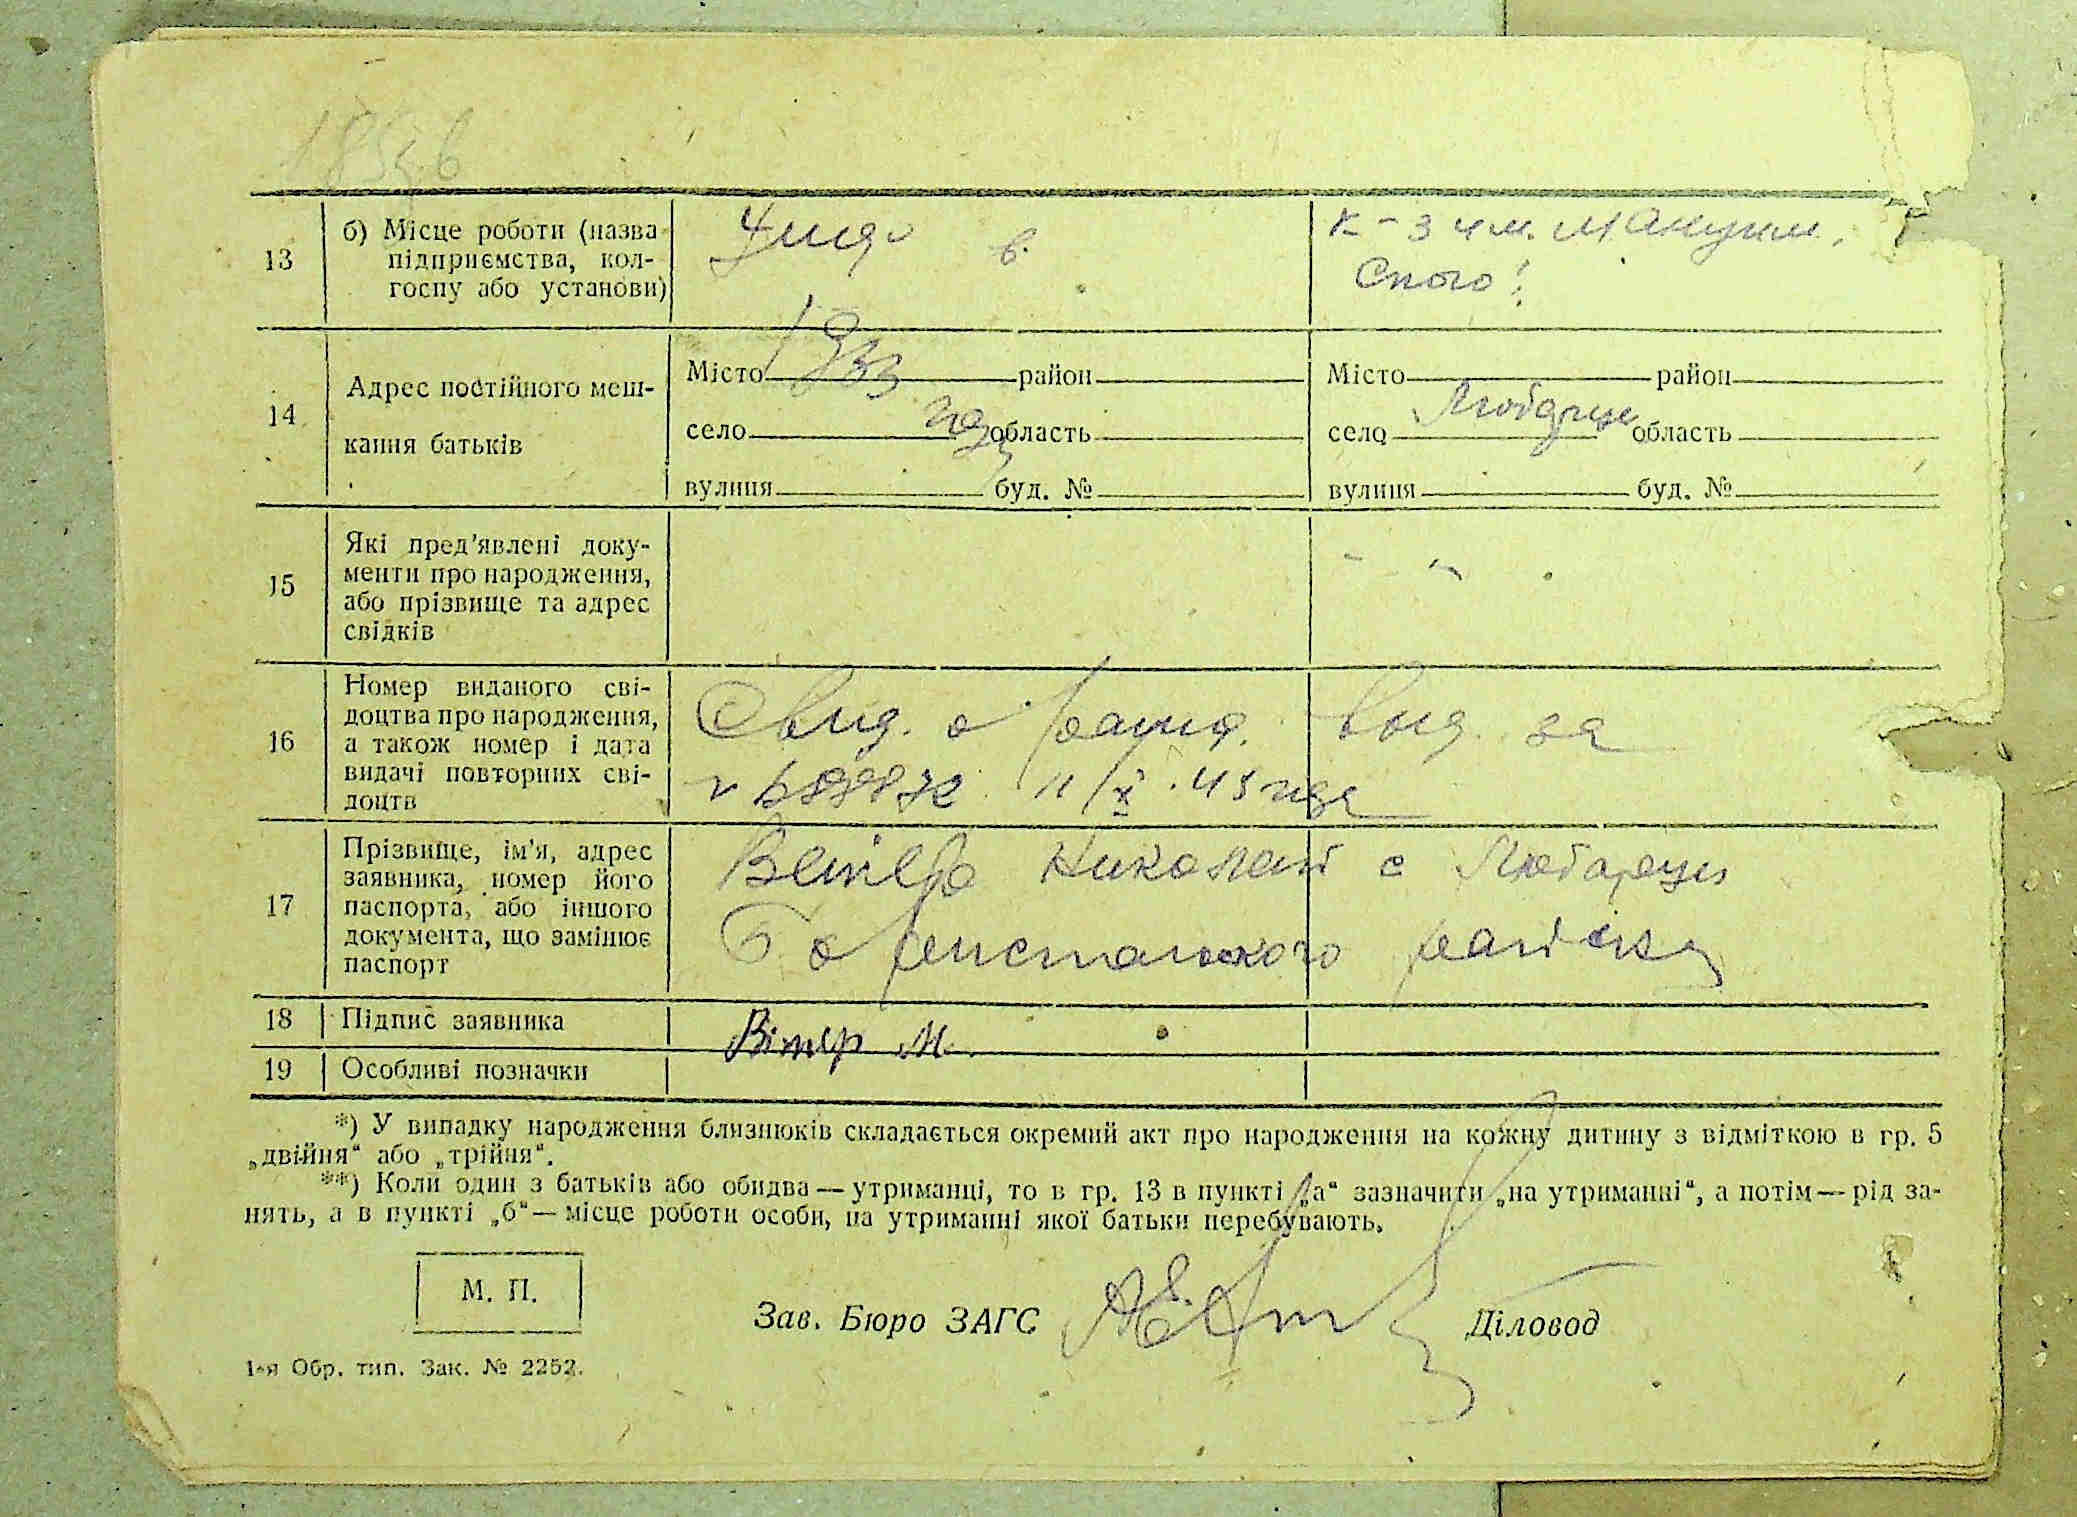 13
б) Місце роботи (назва
підприємства, кол-
госпу або установи)
в.
к-з им. Мануил.
ского
14
Адрес постійного меш-
кання батьків
Місто район
село область
вулиця буд. №
1933
год
Місто район
село Любарцы область
вулиця буд. №
15
Які пред'явлені доку-
менти про народження,
або прізвище та адрес
свідків
- "
16
Номер виданого сві-
доцтва про народження,
а також номер і дата
видачі повторних сві-
доцтв
Свид. о рожд. выд. за
11/X. 43 года
17
Прізвище, ім'я, адрес
заявника, номер його
паспорта, або іншого
документа, що замінює
паспорт
Николай с Любарцы
Бориспольского района
18 Підпис заявника
Вітер М.
19 Особливі позначки
*) У випадку народження близнюків складається окремий акт про народження на кожну дитину з відміткою в гр. 5
„двійня“ або „трійня“.
**) Коли один з батьків або обидва — утриманці, то в гр. 13 в пункті „а“ зазначити „на утриманні“, а потім — рід за-
нять, а в пункті „б“ — місце роботи особи, на утриманні якої батьки перебувають.
М. П.
Зав. Бюро ЗАГС Діловод
1-я Обр. тип. Зак. № 2252.